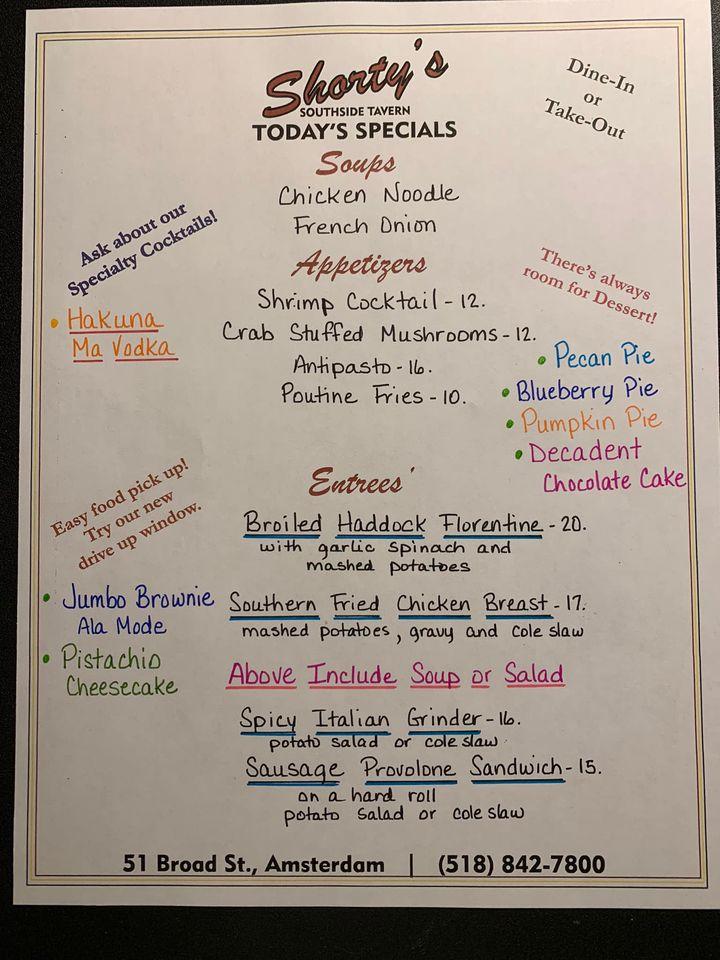 Shorty's
SOUTHSIDE TAVERN
TODAY'S SPECIALS
Dine-In
or
Take-Out
Soups
Chicken Noodle
French Onion
Ask about our
Specialty Cocktails!
• Hakuna
Ma Vodka
Appetizers
Shrimp Cocktail - 12.
Crab Stuffed Mushrooms - 12.
Antipasto - 16.
Poutine Fries - 10.
There's always
room for Dessert!
• Pecan Pie
• Blueberry Pie
• Pumpkin Pie
• Decadent
Chocolate Cake
Easy food pick up!
Try our new
drive up window.
• Jumbo Brownie
Ala Mode
• Pistachio
Cheesecake
Entrees'
Broiled Haddock Florentine - 20.
with garlic spinach and
mashed potatoes
Southern Fried Chicken Breast - 17.
mashed potatoes, gravy and cole slaw
Above Include Soup or Salad
Spicy Italian Grinder - 16.
potato salad or cole slaw
Sausage Provolone Sandwich - 15.
on a hard roll
potato salad or cole slaw
51 Broad St., Amsterdam | (518) 842-7800